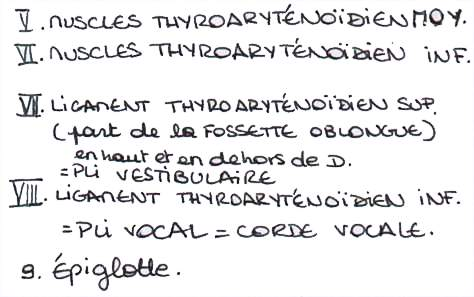 V. MUSCLES THYROARYTÉNOÏDIEN MOY.
VI. MUSCLES THYROARYTÉNOÏDIEN INF.
VII. LIGAMENT THYROARYTÉNOÏDIEN SUP.
(part de la FOSSETTE OBLONGUE)
en haut et en dehors de D.
= PLI VESTIBULAIRE
VIII. LIGAMENT THYROARYTÉNOÏDIEN INF.
= PLI VOCAL = CORDE VOCALE.
9. ÉpiglOtte.